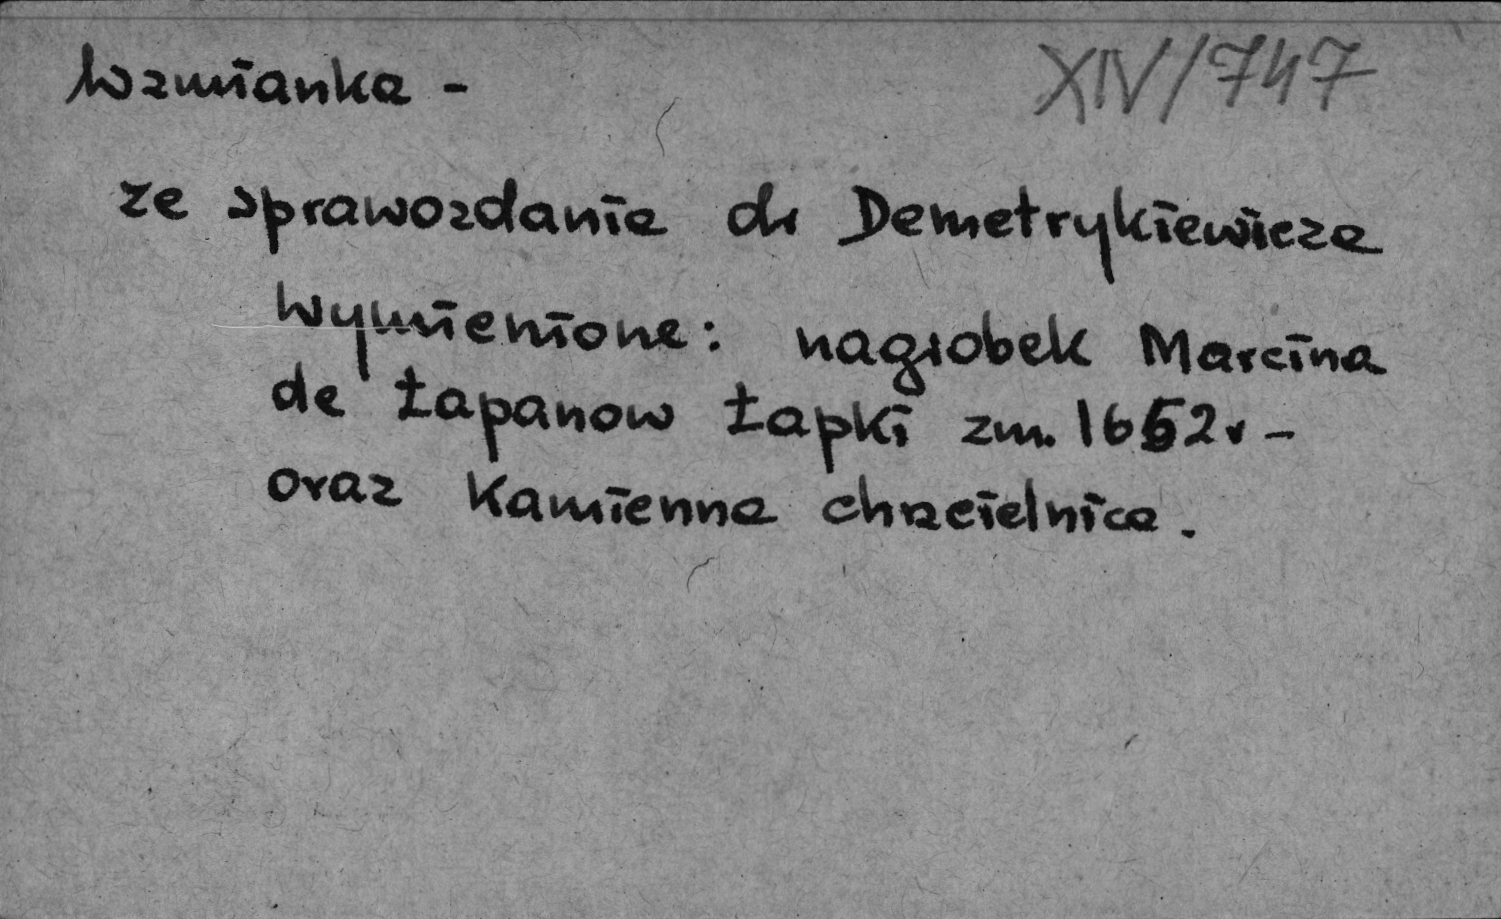 Wzmianka - XIV/747
ze sprawozdania dr Demetrykiewicza
Wymienione: nagrobek Marcina
de Łapanow Łapki zm. 1652r -
oraz Kamienna chrzcielnica.